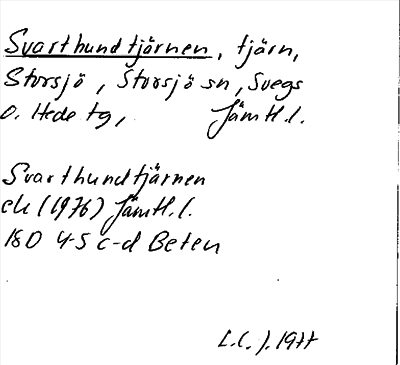 Svarthundtjärnen, tjärn,
Storsjö, Storsjö sn, Svegs
o. Hede tg, Jämtl.l.
Svarthundtjärnen
ek (1976) Jämtl.l.
18D 4-5 c-d Beten
L.C.J. 1977